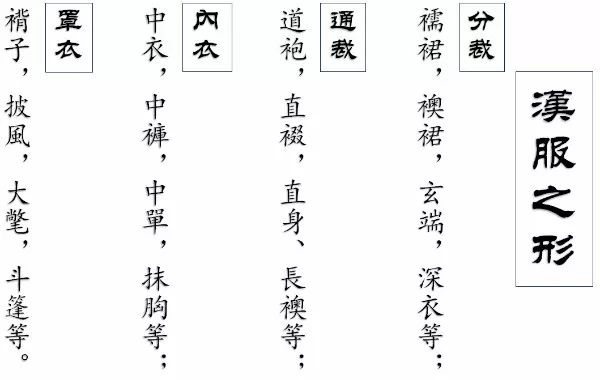 漢服之形
分裁
襦裙，襖裙，玄端，深衣等；
通裁
道袍，直裰，直身、長襖等；
內衣
中衣，中褲，中單，抹胸等；
罩衣
褙子，披風，大氅，斗篷等。